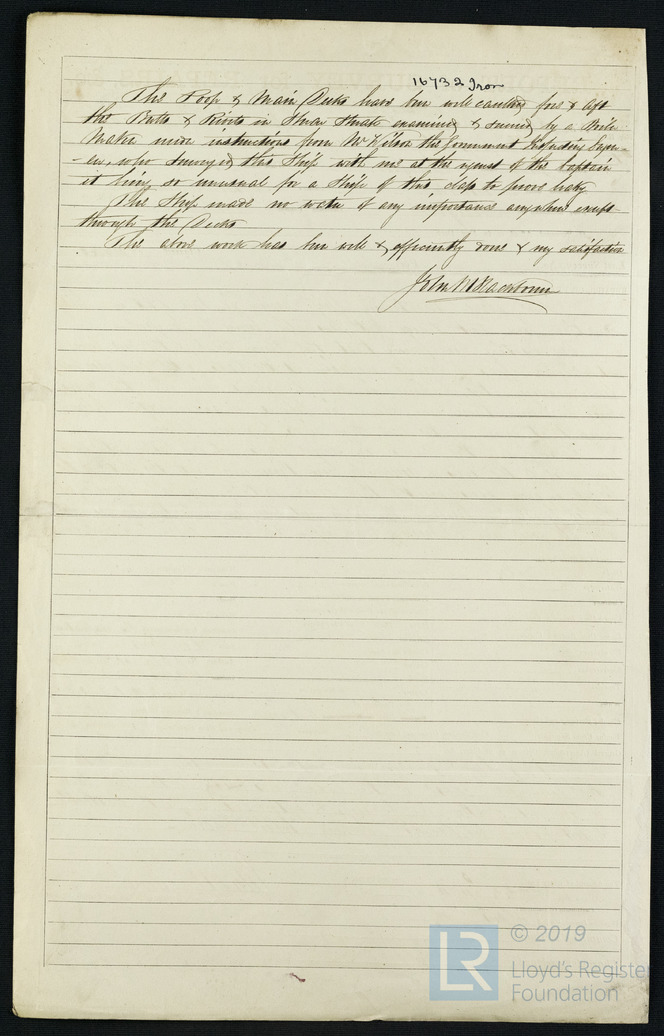 16732 Iron
The Poop & Main Decks have been well caulked fore & aft
the Butts & Rivets in Sheer Strake examined & by a Boiler
Maker under instructions from Mr the Government
who surveyed this Ship with me at the request of the Captain
it being so unusual for a Ship of this class to prove leaky
This Ship made no water of any importance anywhere except
through the Decks
The above work has been well & efficiently done & my satisfaction
John Blackburn
LR
© 2019
Lloyd's Register
Foundation